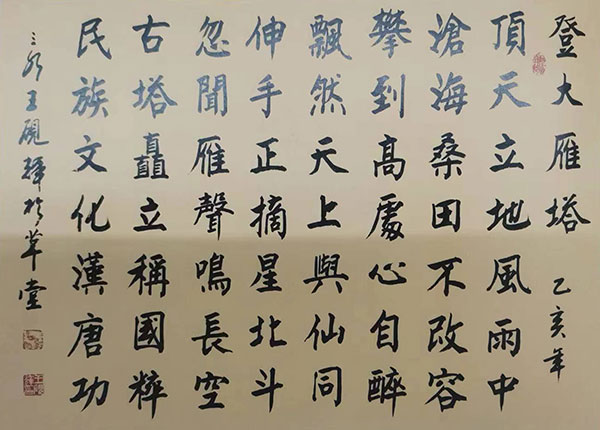 登大雁塔 乙亥年
頂天立地風雨中
滄海桑田不改容
攀到高處心自醉
飄然天上與仙同
伸手正摘星北斗
忽聞雁聲鳴長空
古塔矗立稱國粹
民族文化漢唐功
三水王硯輝於草堂